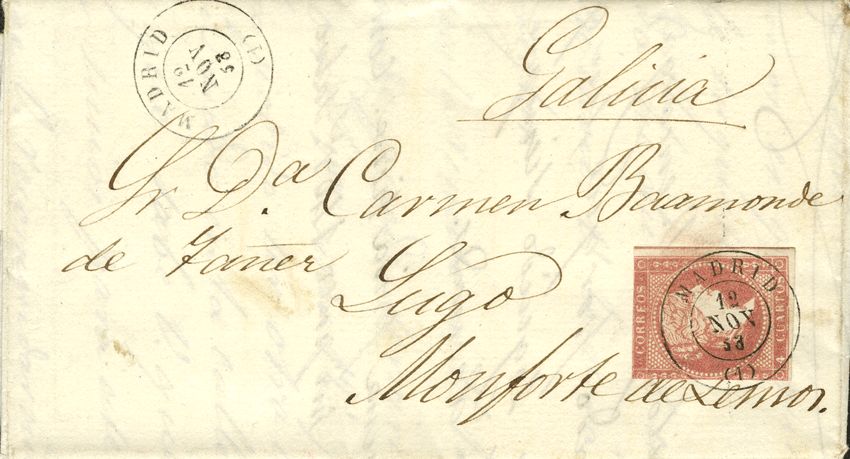 MADRID
12
NOV
58
(1)
Galicia
Sr. D.ª Carmen Baamonde
de Yañer
Lugo
Monforte de Lemos.
MADRID
12
NOV
58
(1)
CORREOS
4 CUARTOS